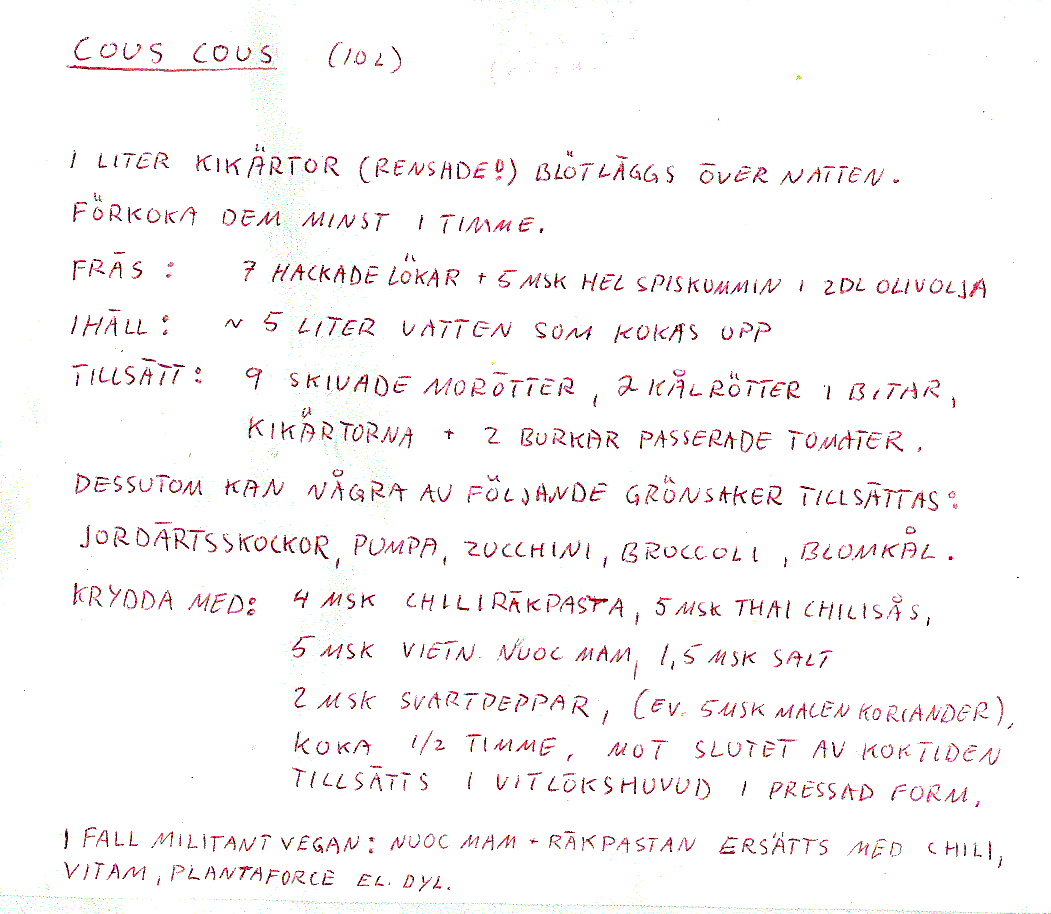 COUS COUS (10 L)
1 LITER KIKÄRTOR (RENSADE!) BLÖTLÄGGS ÖVER NATTEN.
FÖRKOKA DEM MINST 1 TIMME.
FRÄS: 7 HACKADE LÖKAR + 5 MSK HEL SPISKUMMIN I 2DL OLIVOLJA
IHÄLL: ~ 5 LITER VATTEN SOM KOKAS UPP
TILLSÄTT: 9 SKIVADE MORÖTTER, 2 KÅLRÖTTER I BITAR,
KIKÄRTORNA + 2 BURKAR PASSERADE TOMATER.
DESSUTOM KAN NÅGRA AV FÖLJANDE GRÖNSAKER TILLSÄTTAS:
JORDÄRTSSKOCKOR, PUMPA, ZUCCHINI, BROCCOLI, BLOMKÅL.
KRYDDA MED: 4 MSK CHILIRÄKPASTA, 5 MSK THAI CHILISÅS,
5 MSK VIETN. NUOC MAM, 1,5 MSK SALT
2 MSK SVARTPEPPAR, (EV. 5MSK MALEN KORIANDER),
KOKA 1/2 TIMME, MOT SLUTET AV KOKTIDEN
TILLSÄTTS 1 VITLÖKSHUVUD I PRESSAD FORM.
I FALL MILITANT VEGAN: NUOC MAM + RÄKPASTAN ERSÄTTS MED CHILI,
VITAM, PLANTAFORCE EL. DYL.